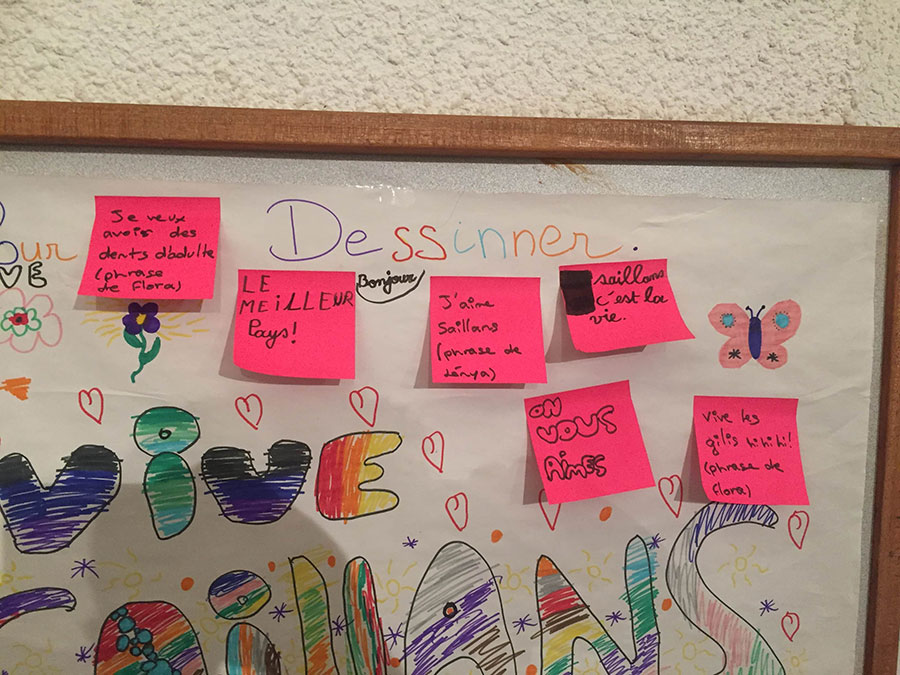 our Dessinner.
VE
Je veux
avois des
dents d'adulte
(phrase
de flora)
LE
MEILLEUR
Pays!
Bonjour
J'aime
Saillans
(phrase de
Lénya)
saillans
c'est la
vie.
ON
VOUS
AIMES
Vive les
gilis hi hi hi!
(phrase de
flora)
vive
SaillANS